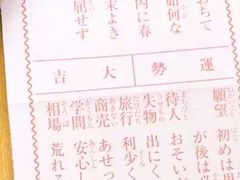 おちて
如何な
内に春
末よき
屈せず
運勢 大吉
願望 初めは思
が後は
待人 おそい
失物 出にく
旅行 利少く
商売 あせっ
学問 安心し
相場 荒れる